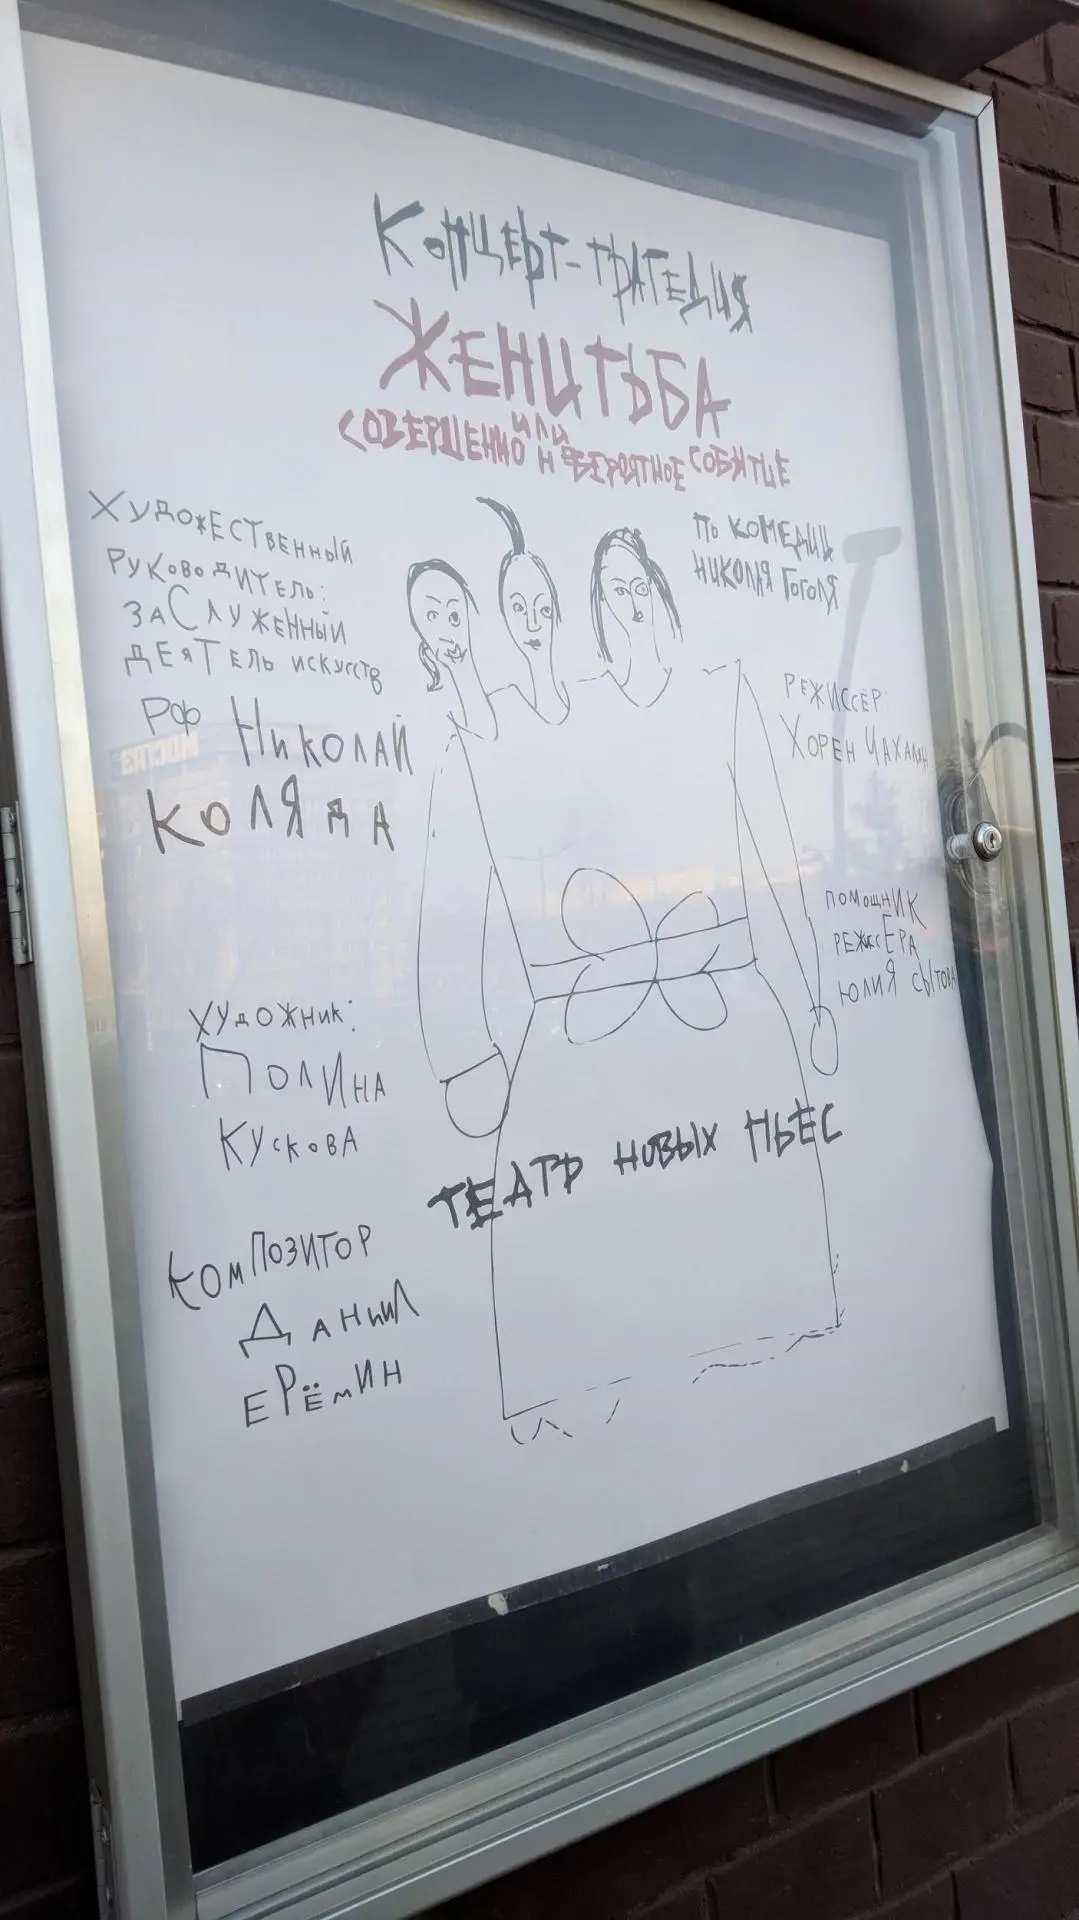 Концерт-трагедия
ЖЕНИТЬБА
или
СОВЕРШЕННО НЕВЕРОЯТНОЕ СОБЫТИЕ
ПО КОМЕДИИ
НИКОЛАЯ ГОГОЛЯ
ХУДОЖЕСТВЕННЫЙ
РУКОВОДИТЕЛЬ:
ЗАСЛУЖЕННЫЙ
ДЕЯТЕЛЬ ИСКУССТВ
РФ НИКОЛАЙ
КОЛЯДА
РЕЖИССЁР:
ХОРЕН ЧАХАЛЯН
ПОМОЩНИК
РЕЖИССЁРА
ЮЛИЯ СЫТОВА
ХУДОЖНИК:
ПОЛИНА
КУСКОВА
ТЕАТР НОВЫХ ПЬЕС
КОМПОЗИТОР
ДАНИИЛ
ЕРЁМИН